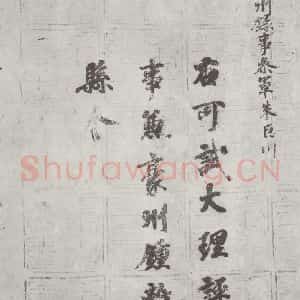 州錄事參軍朱巨川
右可試大理評
事兼豪州鍾離
縣令
Shufawang.CN